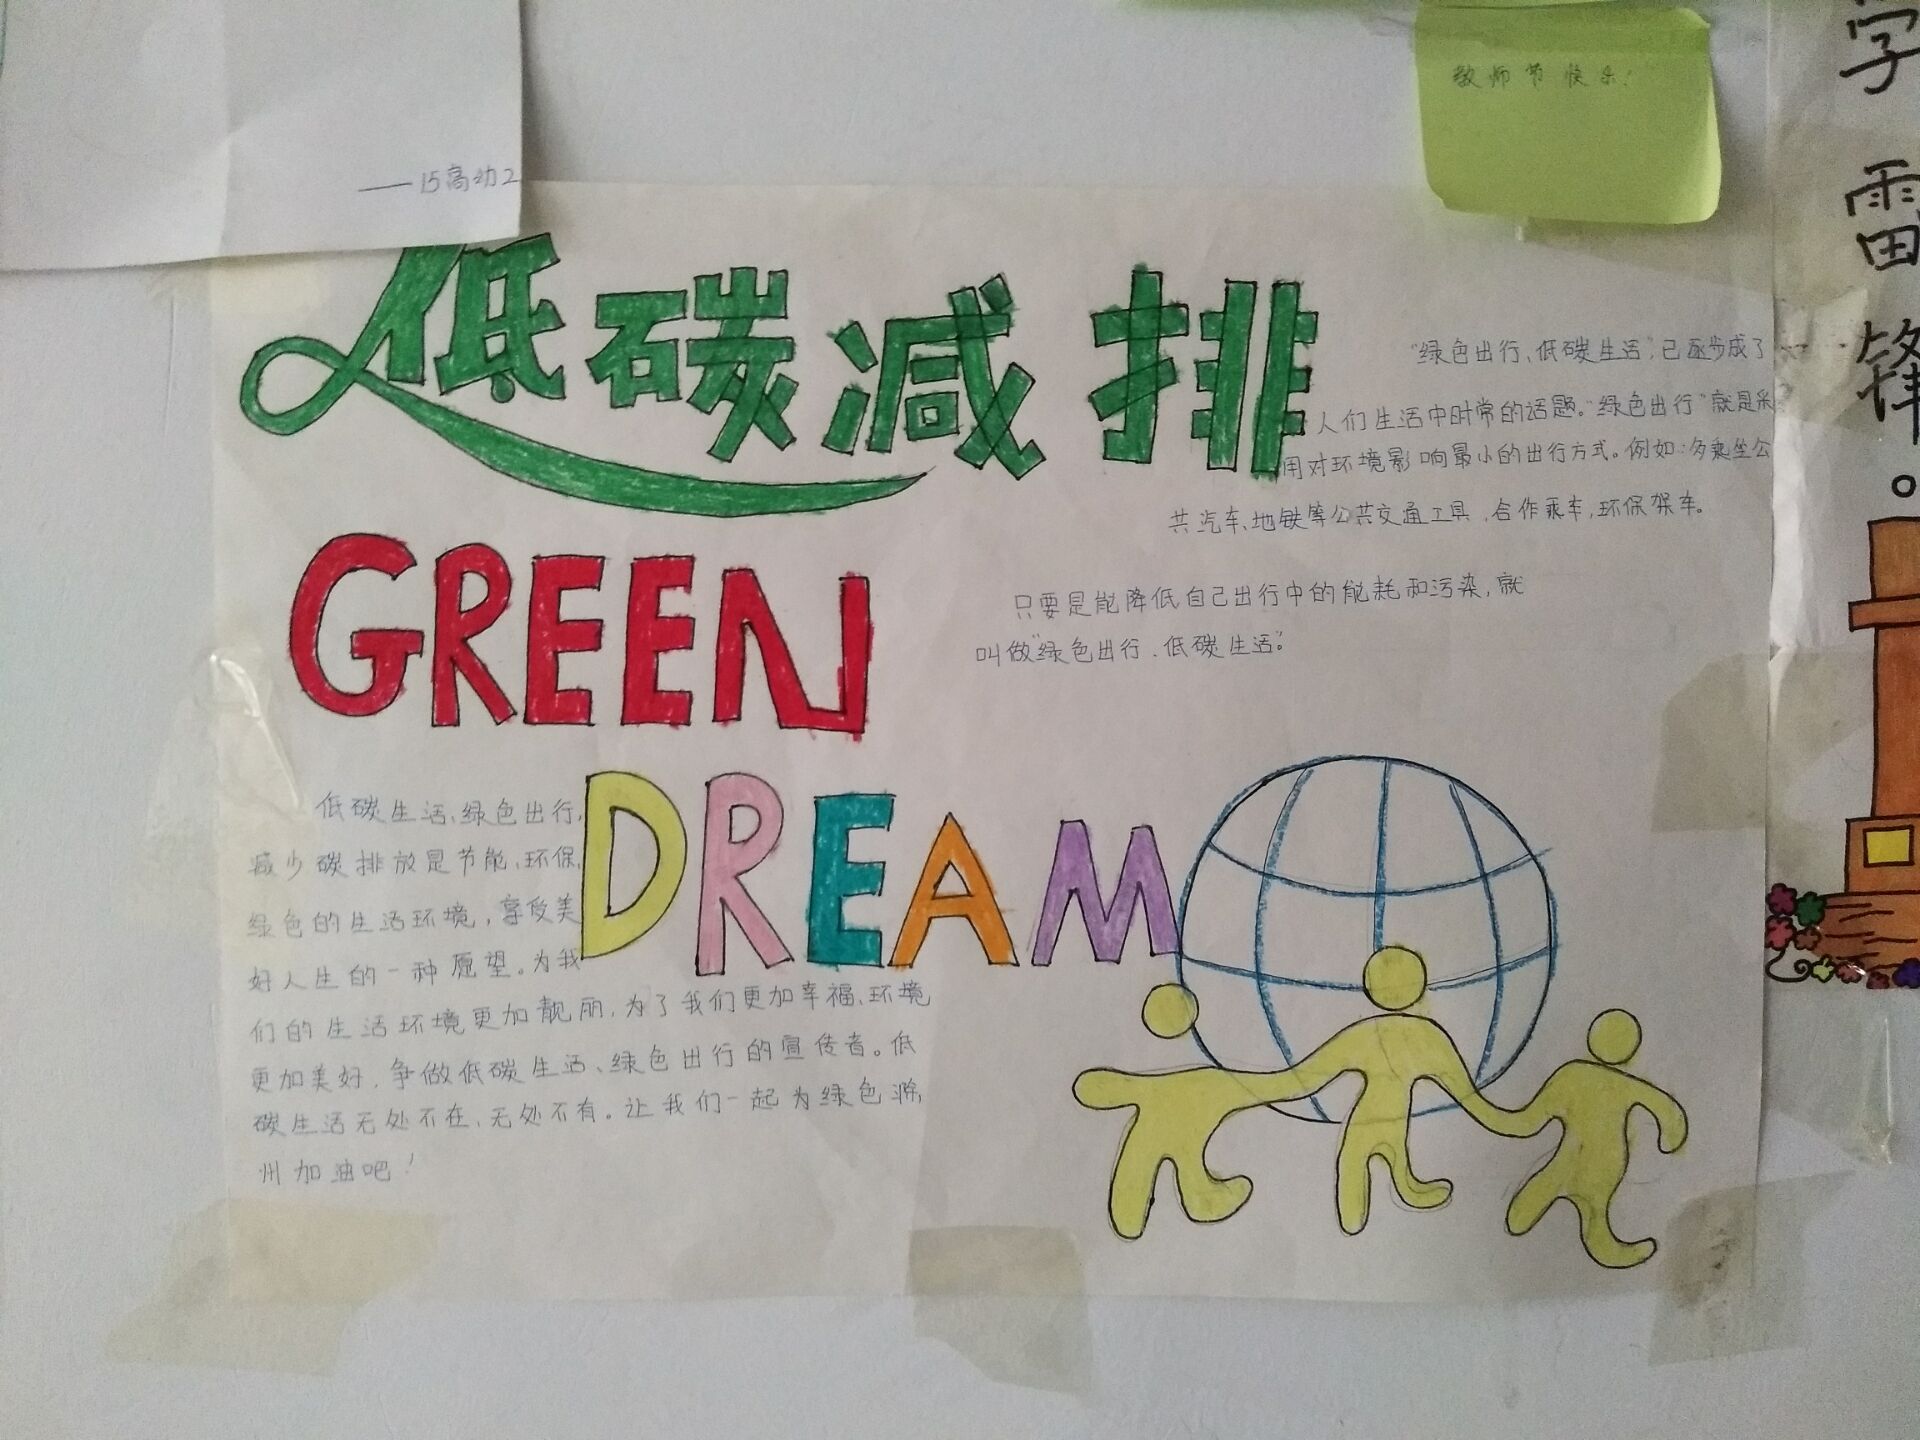 ——15高幼2
教师节快乐！
学雷锋。
低碳减排
"绿色出行、低碳生活",已逐步成了
人们生活中时常的话题。"绿色出行"就是采
用对环境影响最小的出行方式。例如:多乘坐公
共汽车、地铁等公共交通工具,合作乘车,环保驾车。
GREEN
只要是能降低自己出行中的能耗和污染,就
叫做"绿色出行、低碳生活"。
DREAM
低碳生活、绿色出行,
减少碳排放是节能、环保,
绿色的生活环境,享受美
好人生的一种愿望。为我
们的生活环境更加靓丽,为了我们更加幸福、环境
更加美好,争做低碳生活、绿色出行的宣传者。低
碳生活无处不在、无处不有。让我们一起为绿色滁
州加油吧！